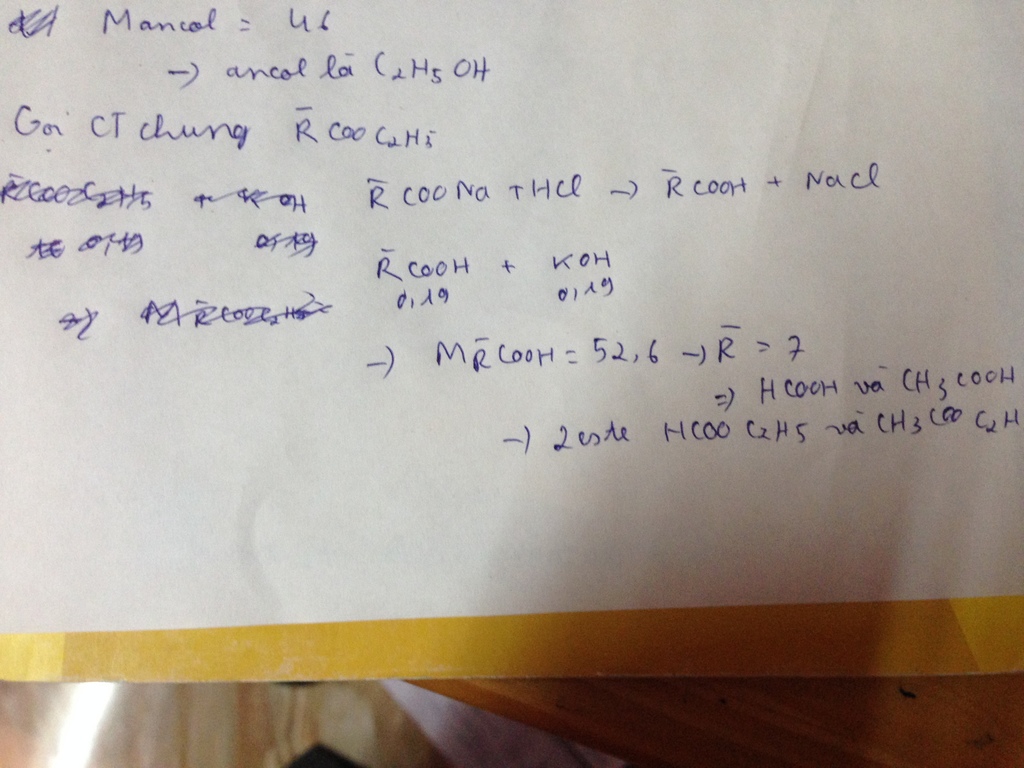 Mancol = 46
→ ancol là C2H5OH
Gọi CT chung R̄COOC2H5
R̄COOC2H5 + KOH R̄COONa + HCl → R̄COOH + NaCl
0,19 0,19
R̄COOH + KOH
0,19 0,19
→ MR̄COOH = 52,6 → R̄ = 7
⇒ HCOOH và CH3COOH
→ 2 este HCOOC2H5 và CH3COOC2H